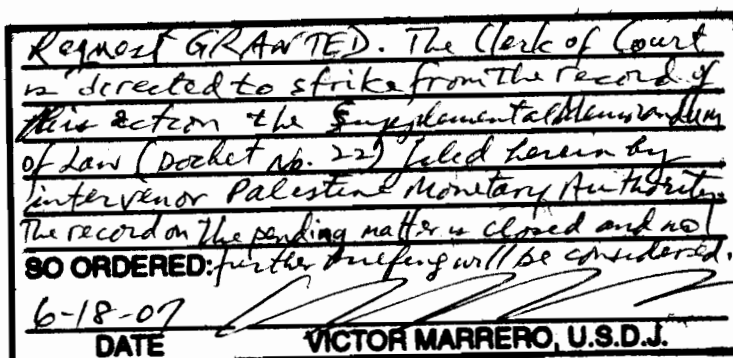 Request GRANTED. The Clerk of Court
is directed to strike from the record of
this action the Supplemental Memorandum
of Law (Docket No. 22) filed herein by
intervenor Palestine Monetary Authority.
The record on the pending matter is closed and no
SO ORDERED: further briefing will be considered.
6-18-07
DATE VICTOR MARRERO, U.S.D.J.